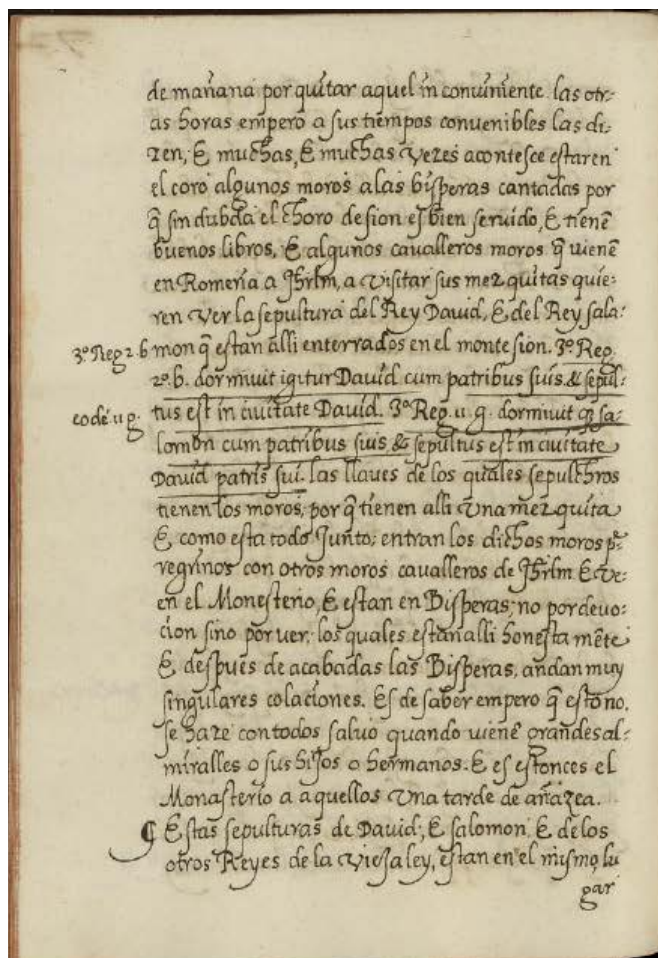 de mañana por quitar aquel in conuiniente las otr-
as horas empero a sus tiempos convenibles las di-
zen, E muchas, E muchas vezes acontesce estar en
el coro algunos moros a las bisperas cantadas por
q̃ sin dubda el choro de sion es bien seruido, E tienẽ
buenos libros, E algunos cavalleros moros q̃ uienẽ
en Romeria a Jhrlm, a visitar sus mezquitas quie-
ren ver la sepultura del Rey David, E del Rey sala-
3º Reg 2. b mon q̃ estan alli enterrados en el monte sion. 3º Reg
2º. b. dormiuit igitur David cum patribus suis & sepul-
eodé. 11 g. tus est in ciuitate David. 3º Reg. 11. g. dormiuit q̃ sa-
lomon cum patribus suis & sepultus est in ciuitate
David patris sui. las llaves de los quales sepulchros
tienen los moros, por q̃ tienen alli una mezquita
E como esta todo Junto; entran los dichos moros pe-
regrinos con otros moros cavalleros de Jhrlm E ve-
en el Monesterio, E estan en Bisperas; no por devo-
cion sino por ver; los quales estan alli honesta mẽte
E despues de acabadas las Bisperas, andan muy
singulares colaciones. Es de saber empero q̃ esto no,
se haze con todos saluo quando uienẽ grandes al-
miralles o sus hijos o hermanos. E es estonces el
Monasterio a aquellos una tarde de añazea.
¶ Estas sepulturas de David, E salomon, E de los
otros Reyes de la vieja ley, estan en el mismo lu
gar